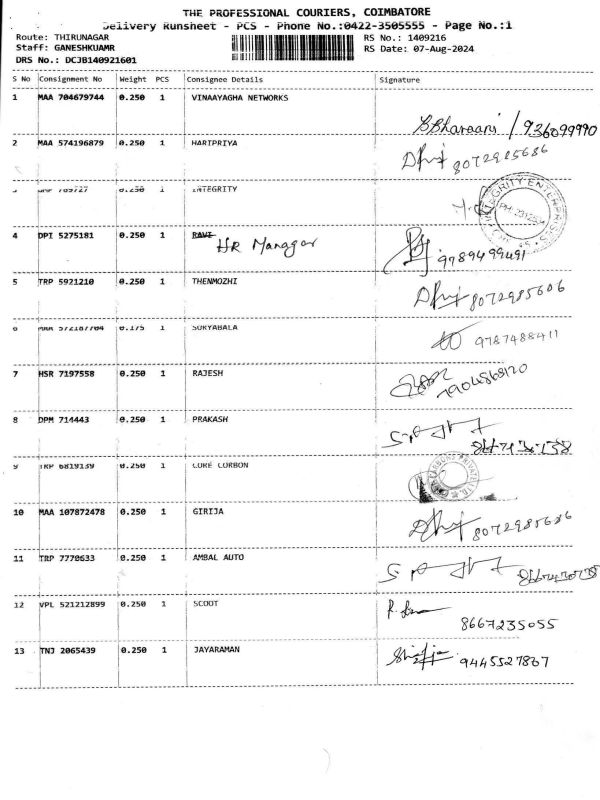 THE PROFESSIONAL COURIERS, COIMBATORE
Delivery Runsheet - PCS - Phone No.:0422-3505555 - Page No.:1
Route: THIRUNAGAR RS No.: 1409216
Staff: GANESHKUAMR RS Date: 07-Aug-2024
DRS No.: DCJB140921601
S No Consignment No Weight PCS Consignee Details Signature
1 MAA 704679744 0.250 1 VINAAYAGHA NETWORKS
B Bharaani / 936099990
2 MAA 574196879 0.250 1 HARIPRIYA
8072985686
INTEGRITY
INTEGRITY ENTERPRISES
4 DPI 5275181 0.250 1 RAVI
HR Manager
9789499491
5 TRP 5921210 0.250 1 THENMOZHI
8072985606
6 MAA 572187704 0.175 1 SURYABALA
9787488411
7 HSR 7197558 0.250 1 RAJESH
8 DPM 714443 0.250 1 PRAKASH
9 TRP 6819139 0.250 1 CORE CORBON
10 MAA 107872478 0.250 1 GIRIJA
8072985686
11 TRP 7770633 0.250 1 AMBAL AUTO
12 VPL 521212899 0.250 1 SCOOT
8667235055
13 TNJ 2065439 0.250 1 JAYARAMAN
9445527867